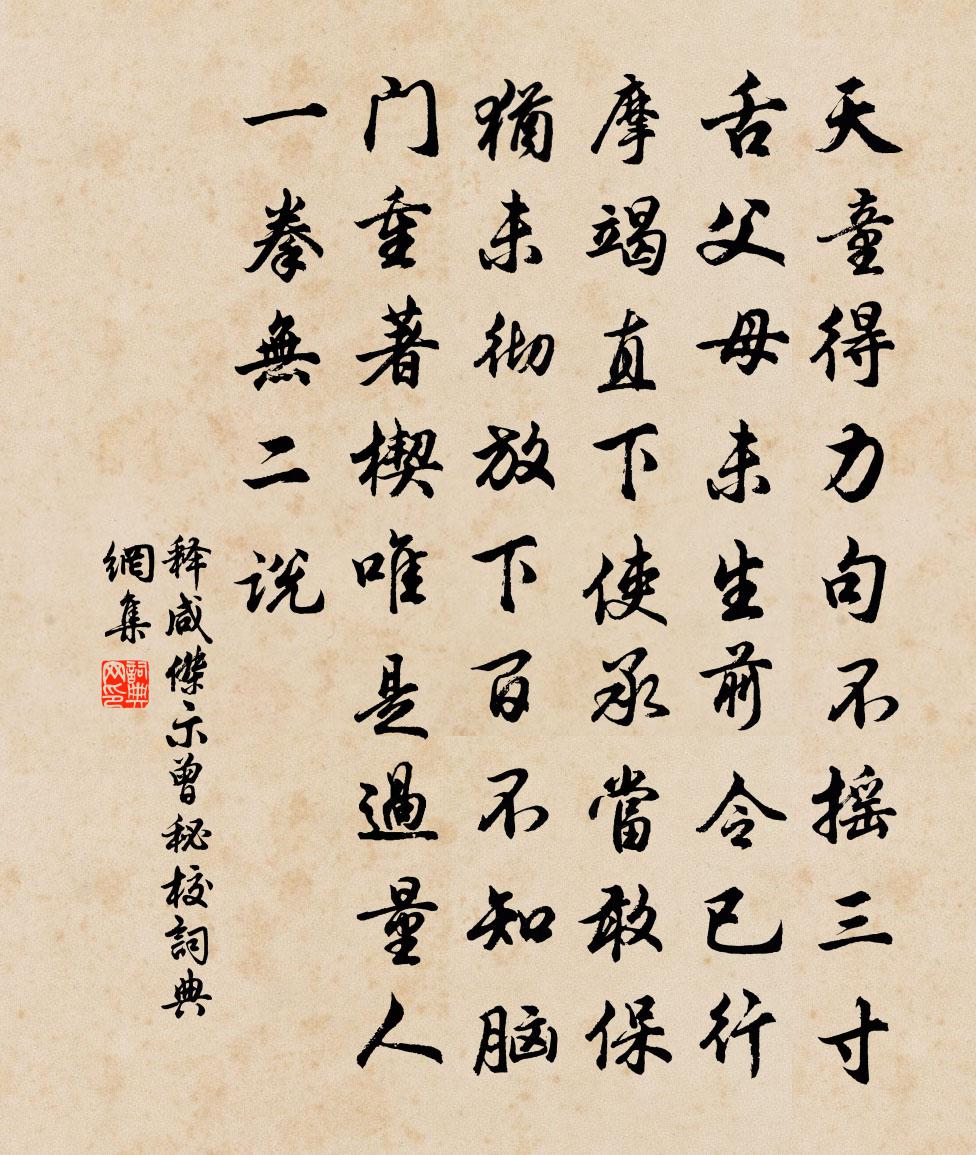 天童得力句不摇三寸
舌父母未生前令已行
摩竭直下使承當敢保
猶未彻放下百不知脑
门重著楔唯是過量人
一拳無二说
释咸傑示曾秘校詞典
網集
詞典网印